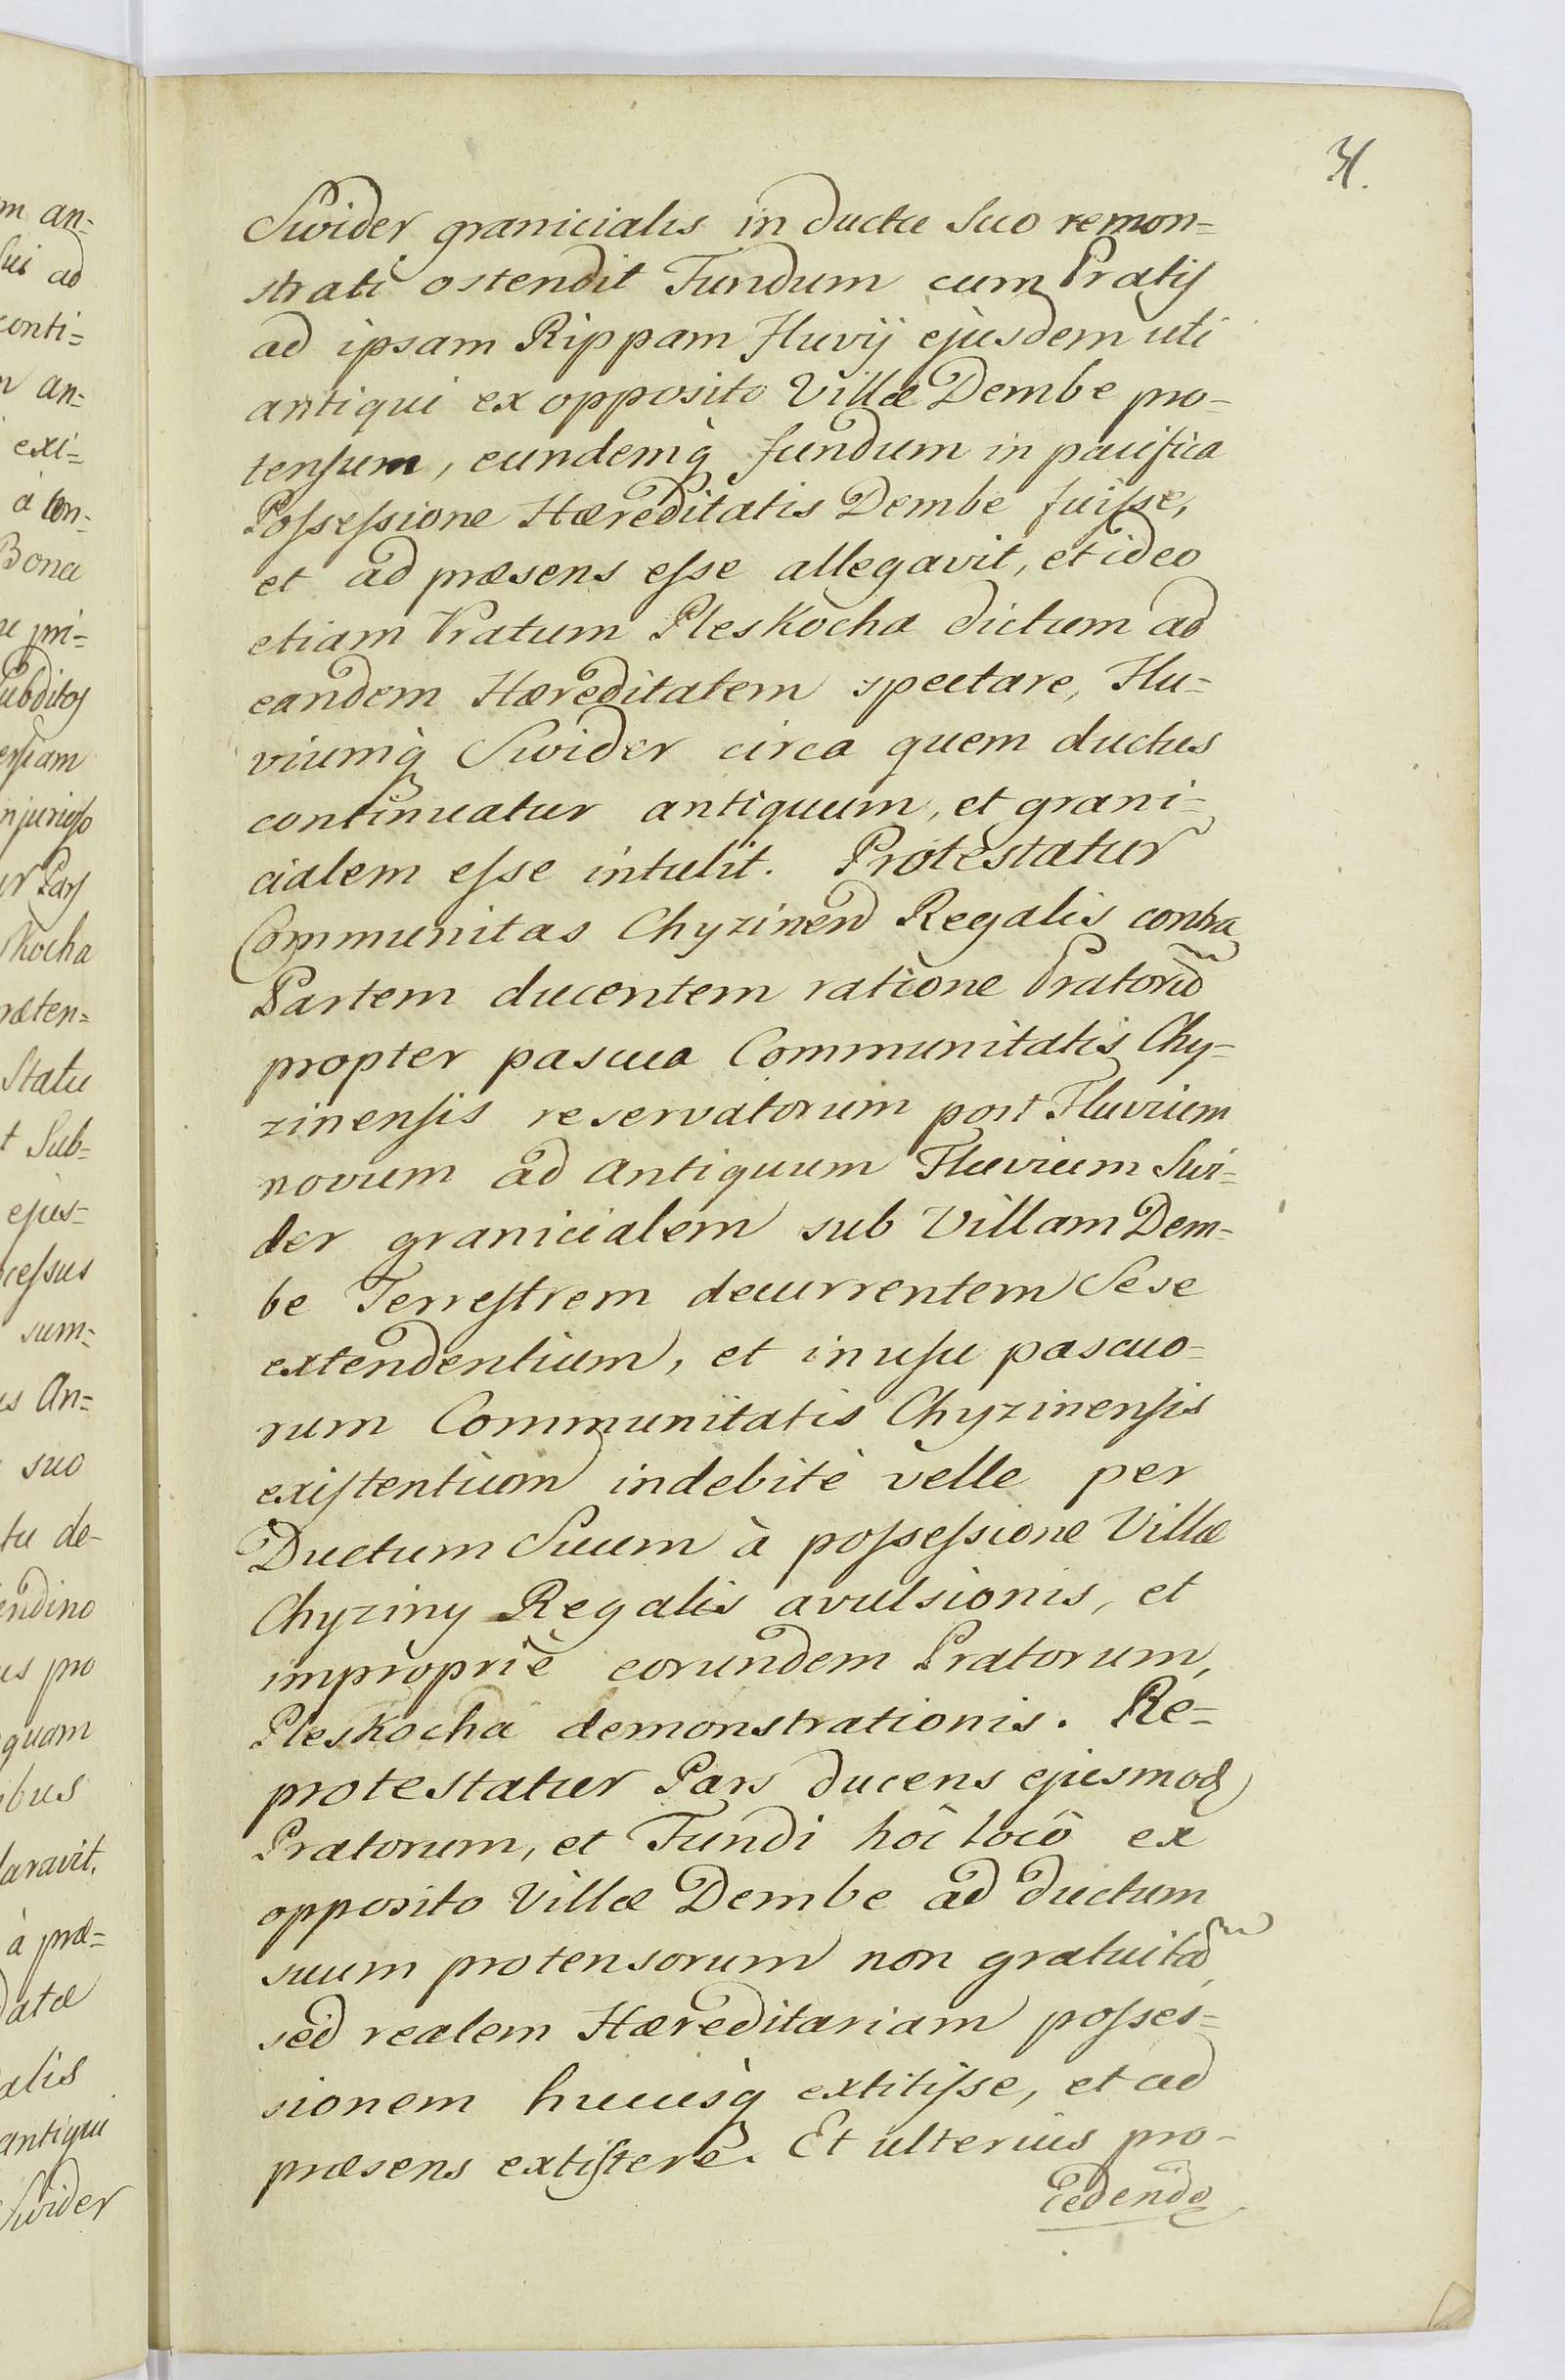 31.
Swider granicialis in ductu suo remon=
strati ostendit Fundum cum Pratis
ad ipsam Rippam Fluvij ejusdem uti
antiqui ex opposito Villæ Dembe pro-
tensum, eundemq̀ fundum in pacifica
Possessione Hæreditatis Dembe fuisse,
et ad præsens esse allegavit, et ideo
etiam Pratum Pleskocha dictum ad
eandem Hæreditatem spectare, Flu=
viumq̀ Swider circa quem ductus
continuatur antiquum, et grani=
cialem esse intulit. Protestatur
Communitas Chyzinen Regalis contra
Partem ducentem ratione Pratorũ
propter pascua Communitatis Chy=
zinensis reservatorum post Fluvium
novum ad antiquum Fluvium Swi=
der granicialem sub Villam Dem=
be Terrestrem decurrentem Sese
extendentium, et in usu pascuo=
rum Communitatis Chyzinensis
existentium indebitè velle per
Ductum Suum à possessione Villæ
Chyziny Regalis avulsionis, et
impropriè eorundem Pratorum,
Pleskocha demonstrationis. Re=
protestatur Pars ducens ejusmod
Pratorum, et Fundi hôc locô ex
opposito Villæ Dembe ad ductum
suum protensorum non gratuitã,
sed realem Hæreditariam posses=
sionem hucusq̀ extitisse, et ad
præsens extistere. Et ulterius pro-
cedendo
m an=
sui ad
conti=
m an=
exi=
à con=
Bona
pri=
Subditos
ersiam
injurioso
ur Pars
skocha
ræten=
Statu
t Sub=
ejus=
cessus
sum=
us An=
suo
tu de-
endino
us pro
quam
ibus
laravit.
à præ=
Datæ
alis
antiqui
Swider